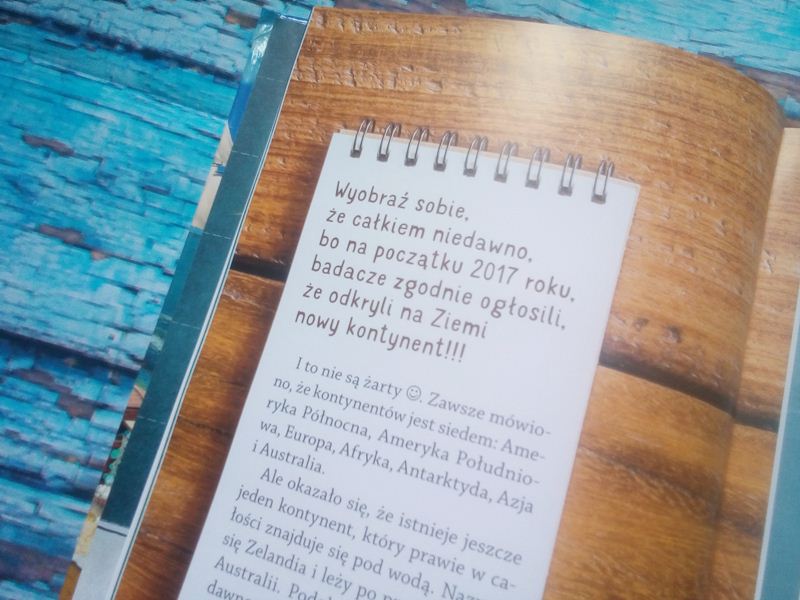 Wyobraź sobie,
że całkiem niedawno,
bo na początku 2017 roku,
badacze zgodnie ogłosili,
że odkryli na Ziemi
nowy kontynent!!!
I to nie są żarty ☺. Zawsze mówio-
no, że kontynentów jest siedem: Ame-
ryka Północna, Ameryka Południo-
wa, Europa, Afryka, Antarktyda, Azja
i Australia.
Ale okazało się, że istnieje jeszcze
jeden kontynent, który prawie w ca-
łości znajduje się pod wodą.
się Zelandia i leży po
Australii.